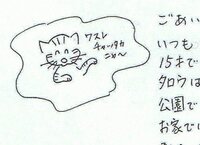 ワスレ
チャッタカ
ニャ〜
ごあい
いつも
15才で
タロウは
公園で
お家で